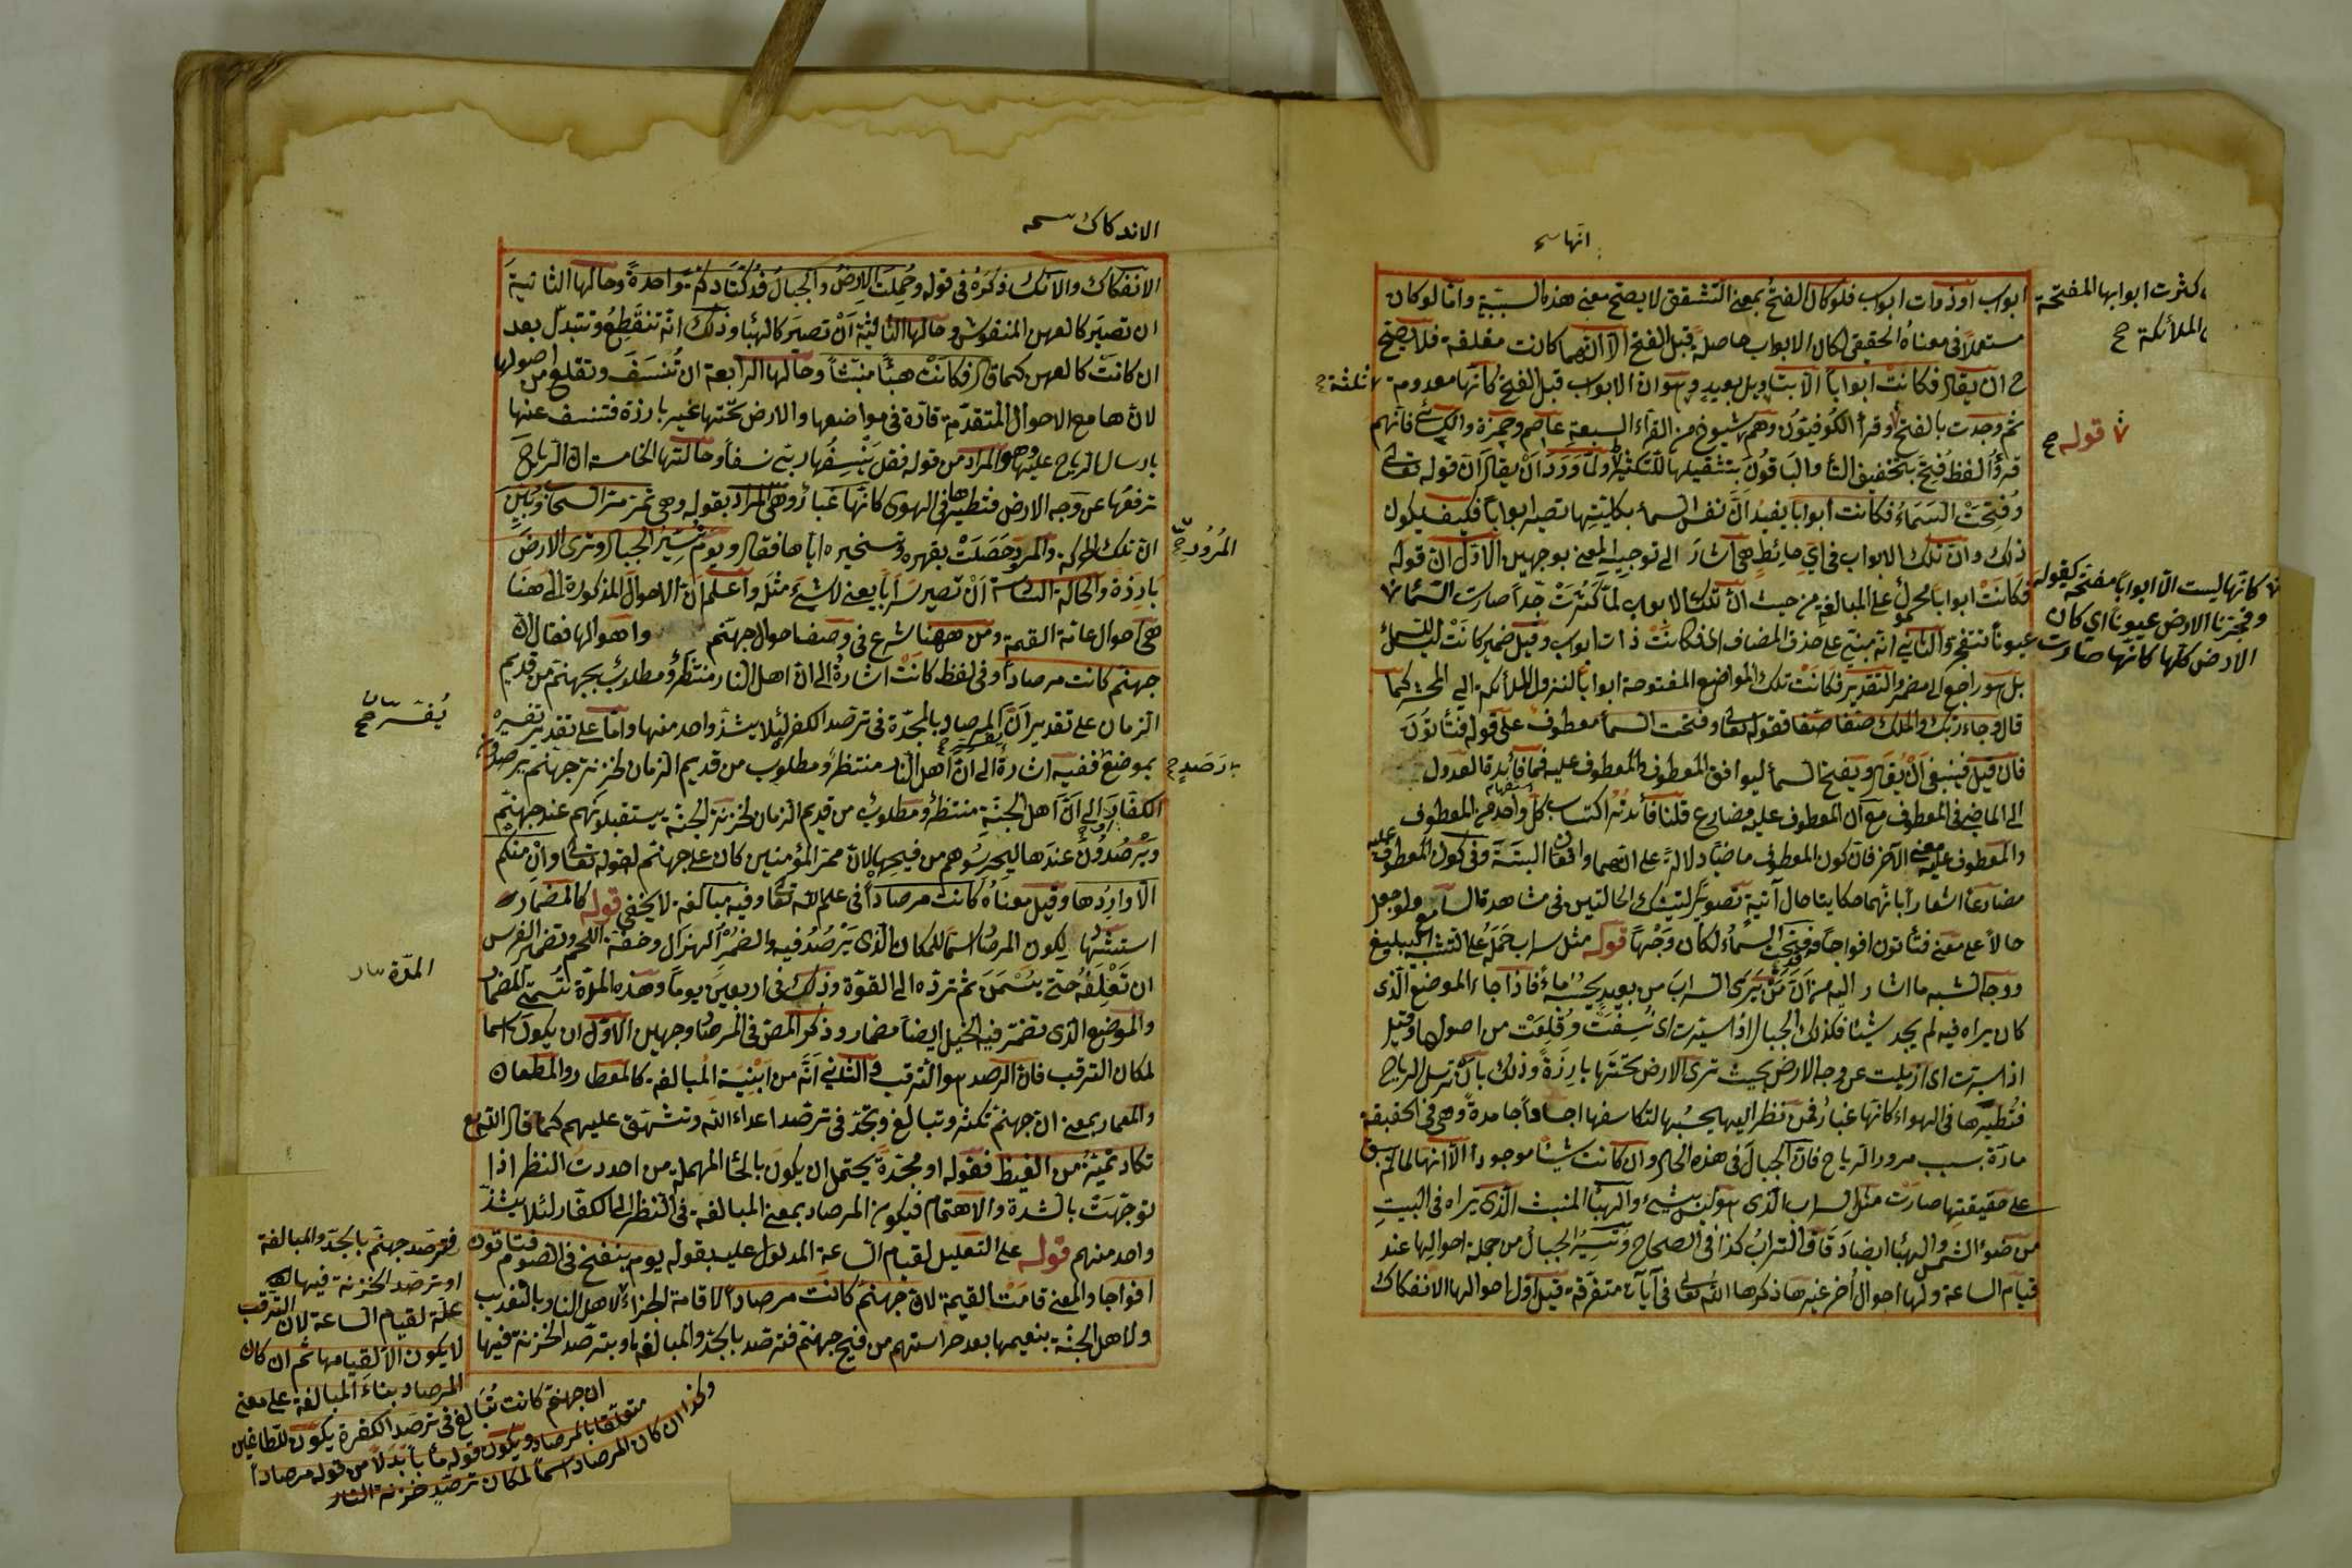 انها سه
ابواب او ذوات ابواب فلو كان الفتح بمعنى التشقق لا يصح معنى هذه السببية واما لو كان
مستعملا فى معناه الحقيقى لكان الابواب حاصلة قبل الفتح الا انها كانت مغلقة فلا يصح
ح ان يقال فكانت ابوابا الا بتاويل بعيد وهو ان الابواب قبل الفتح كانها معدومة
ثم وجدت بالفتح وقرأ الكوفيون وهم شيوخ من القراء السبعة عاصم وحمزة والكسائى فانهم
قرؤا لفظ فُتِحَ بتخفيف التاء والباقون بتثقيلها للتكثير ولما ورد ان يقال ان قوله تعالى
وفُتِحَتْ السَّمَاءُ فكانت أبوابا يفيد أنّ نفس السماء بكليتها تصير ابوابا فكيف يكون
ذلك وان تلك الابواب فى اىّ حائط هى اشار الى توجيه المعنى بوجهين الاول ان قوله
فكانت ابوابا محمول على المبالغة من حيث ان تلك الابواب لما كثرت جدا صارت السماء
عيونا تنفجر والثانى انه مبنى على حذف المضاف اى فكانت ذات ابواب وقيل ضمير كانت ليس للسماء
بل هو راجع الى مضمر والتقدير فكانت تلك المواضع المفتوحة ابوابا لنزول الملائكة الى المحشر كما
قال وجاء ربك والملك صفا صفا فقوله تعالى وفتحت السماء معطوف على قوله فتأتون
فان قيل فينبغى ان يقال وتفتح السماء ليوافق المعطوف المعطوف عليه فما فائدة العدول
الى الماضى فى المعطوف مع ان المعطوف عليه مضارع قلنا فائدته اكتساب كل واحد من المعطوف
والمعطوف عليه معنى الآخر فان كون المعطوف ماضيا دلالة على انهما واقعان البتة وفى كون المعطوف عليه
مضارعا اشعارا بانهما حكايتا حال آتية تصويرا لتينك الحالتين فى مشاهدة السامع ولو جعل
حالا على معنى فتأتون افواجا وقد فتحت السماء لكان وجها قوله مثل سراب حَمَلَهُ على التشبيه البليغ
ووجه الشبه ما اشار اليه من ان من يرى السراب من بعيد يحسبه ماء فاذا جاء الموضع الذى
كان يراه فيه لم يجد شيئا فكذلك الجبال اذا سيرت اى نُسِفَت وقُلِعَت من اصولها وقيل
اذا سيرت اى ازيلت عن وجه الارض بحيث ترى الارض تحتها بارزة وذلك بان ترسل الرياح
فتُطيّرها فى الهواء كانها غبار فمن نظر اليها يحسبها لتكاسفها اجساما جامدة وهى فى الحقيقة
مارّة بسبب مرور الرياح فان الجبال فى هذه الحال وان كانت شيئا موجودا الا انها لما لم تبق
على حقيقتها صارت مثل السراب الذى هو ليس بشىء والهباء المنبث الذى تراه فى البيت
من ضوء الشمس والهباء ايضا دقاق التراب كذا فى الصحاح وتسيير الجبال من جملة احوالها عند
قيام الساعة ولها احوال اخر غيرها ذكرها الله تعالى فى آيات متفرقة قيل اول احوالها الانفكاك
كثرت ابوابها المفتحة
الملائكة صح
ثلثة صح
قوله صح
كانها ليست الا ابوابا مفتحة كقوله
وفجرنا الارض عيونا اى كان
الارض كلها كانها صارت
الاندكاك سه
الانفكاك والاندكاك ذكره فى قوله وحُمِلَت الارض والجبال فدُكّتا دكة واحدة وحالها الثانية
ان تصير كالعهن المنفوش وحالها الثالثة ان تصير كالهباء وذلك انه تنقطع وتتبدل بعد
ان كانت كالعهن كما قال فكانت هباءً منبثا وحالها الرابعة ان تُنسَفَ وتقلع من اصولها
لانها مع الاحوال المتقدمة قارّة فى مواضعها والارض تحتها غير بارزة فتنسف عنها
بارسال الرياح عليها وهو المراد من قوله فقل ينسفها ربى نسفا وحالتها الخامسة ان الرياح
ترفعها عن وجه الارض فتطيرها فى الهوى كانها غبار وهى المراد بقوله وهى تمر مرّ السحاب وبيّن
ان تلك الحركة والمرور حَصَلَتْ بقهره وتسخيره اياها فقال ويوم نسير الجبال وترى الارض
بارزة والحالة السادسة ان تصير سرابا يعنى لا شىء مثله واعلم ان الاحوال المذكورة الى هنا
هى احوال عامة القيمة ومن ههنا شرع فى وصف احوال جهنم واهوالها فقال ان
جهنم كانت مرصادا وفى لفظ كانت اشارة الى ان اهل النار منتظر ومطلوب بجهنم من قديم
الزمان على تقدير ان المرصاد بالمجدّة فى ترصد الكفر لئلا يشذ واحد منها واما على تقدير تفسيره
بموضع ففيه اشارة الى ان اهل النار منتظر ومطلوب من قديم الزمان لخزنة جهنم يرصدون
الكفار والى ان اهل الجنة منتظر ومطلوب من قديم الزمان لخزنة الجنة يستقبلونهم عند جهنم
ويرصدون عندها ليحرسوهم من فيحها لان ممرّ المؤمنين كان على جهنم لقوله تعالى وان منكم
الا واردها وقيل معناه كانت مرصادا فى علم الله تعالى وفيه مبالغة لا يخفى قوله كالمضمار
استشهاد لكون المرصاد اسما للمكان الذى يرصد فيه والضُمْرُ الهزال وخفة اللحم وتضمير الفرس
ان تعلفه حتى يسمن ثم ترده الى القوة وذلك فى اربعين يوما وهذه المدة تسمى المضمار
والموضع الذى تضمر فيه الخيل ايضا مضمار وذكر المص فى المرصاد وجهين الاول ان يكون اسما
لمكان الترقب فان الرصد هو الترقب والثانى انه من ابنية المبالغة كالمعطار والمطعان
والمعمار بمعنى ان جهنم تكثر وتبالغ وتجد فى ترصد اعداء الله وتشهق عليهم كما قال الله تع
تكاد تميز من الغيظ فقوله او مجدّة يحتمل ان يكون بالحاء المهملة من احددت النظر اذا
توجهت بالشدة والاهتمام فيكون المرصاد بمعنى المبالغة فى النظر الى الكفار لئلا يشذ
واحد منهم قوله على التعليل لقيام الساعة المدلول عليه بقوله يوم ينفخ فى الصور فتاتون
افواجا والمعنى قامت القيمة لان جهنم كانت مرصادا لاقامة الجزاء لاهل النار بالتعذيب
ولاهل الجنة بنعيمها بعد حراستهم من فيح جهنم فترصد بالجد والمبالغة او بترصد الخزنة فيها
المرور صح
يرصد صح
يفسر صح
المدة
فترصد جهنم بالجد والمبالغة
او ترصد الخزنة فيها
علة لقيام الساعة لان الترقب
لا يكون الا لقيامها ثم ان كان
المرصاد بناء المبالغة على معنى
ان جهنم كانت تبالغ فى ترصد الكفرة يكون للطاغين
متعلقا بالمرصاد ويكون قوله مأبا بدلا من قوله مرصادا
وكذا ان كان المرصاد اسما لمكان ترصد خزنة النار